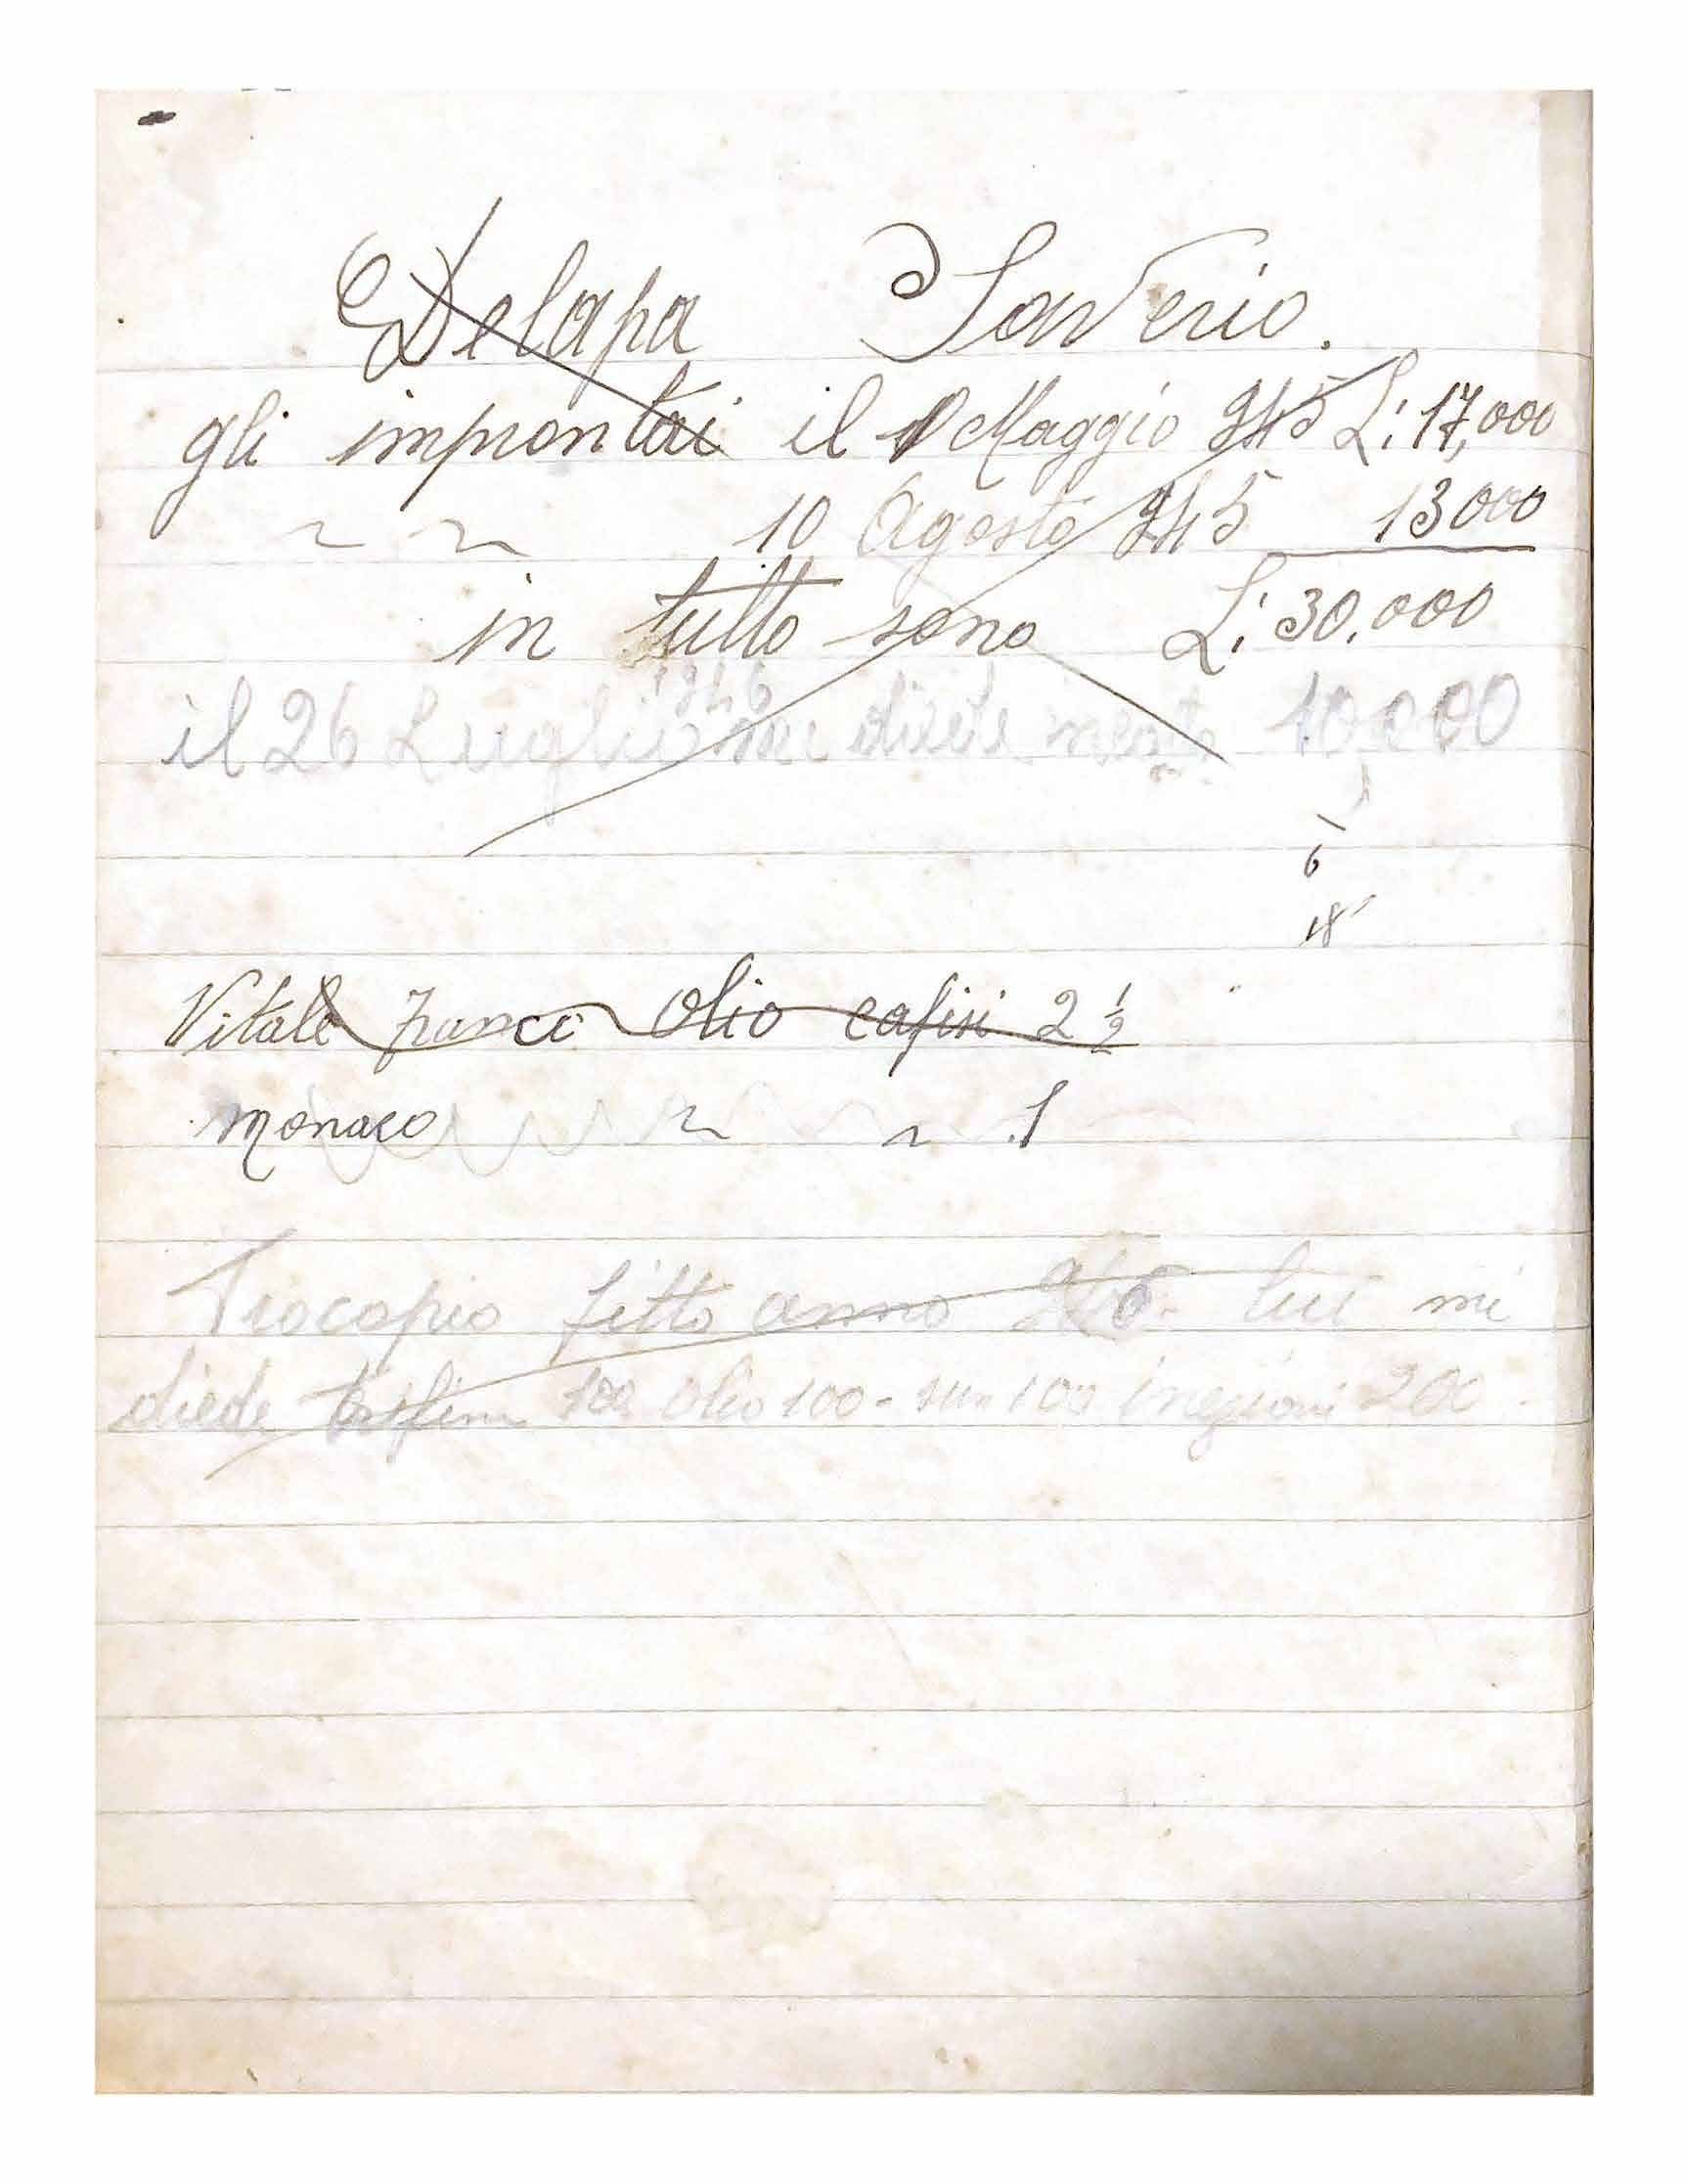 Delapa Saverio.
gli improntai il 1 Maggio 945 L: 17,000
~ ~ 10 Agosto 945 13000
in tutto sono L: 30.000
1946
il 26 Luglio me diede 10000
6
18
Vitale Franco olio cafisi 2 ½
monaco ~ ~ 1
Procopio fitto anno lui mi
diede 100 olio 100 - 100 inezioni 200